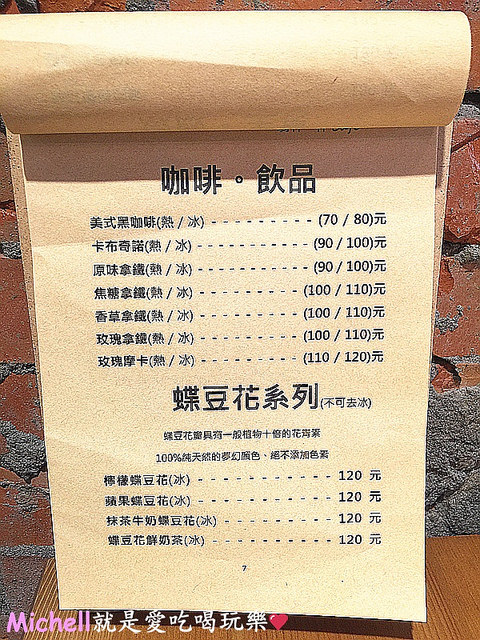 咖啡。飲品
美式黑咖啡(熱/冰) - - - - - - - - - - (70 / 80)元
卡布奇諾(熱/冰) - - - - - - - - - - (90 / 100)元
原味拿鐵(熱/冰) - - - - - - - - - - (90 / 100)元
焦糖拿鐵(熱/冰) - - - - - - - - - (100 / 110)元
香草拿鐵(熱/冰) - - - - - - - - - (100 / 110)元
玫瑰拿鐵(熱/冰) - - - - - - - - - (100 / 110)元
玫瑰摩卡(熱/冰) - - - - - - - - - (110 / 120)元
蝶豆花系列(不可去冰)
蝶豆花瓣具有一般植物十倍的花青素
100%純天然的夢幻顏色、絕不添加色素
檸檬蝶豆花(冰) - - - - - - - - - - - - 120 元
蘋果蝶豆花(冰) - - - - - - - - - - - - 120 元
抹茶牛奶蝶豆花(冰) - - - - - - - - - - 120 元
蝶豆花鮮奶茶(冰) - - - - - - - - - - - 120 元
7
Michell就是愛吃喝玩樂